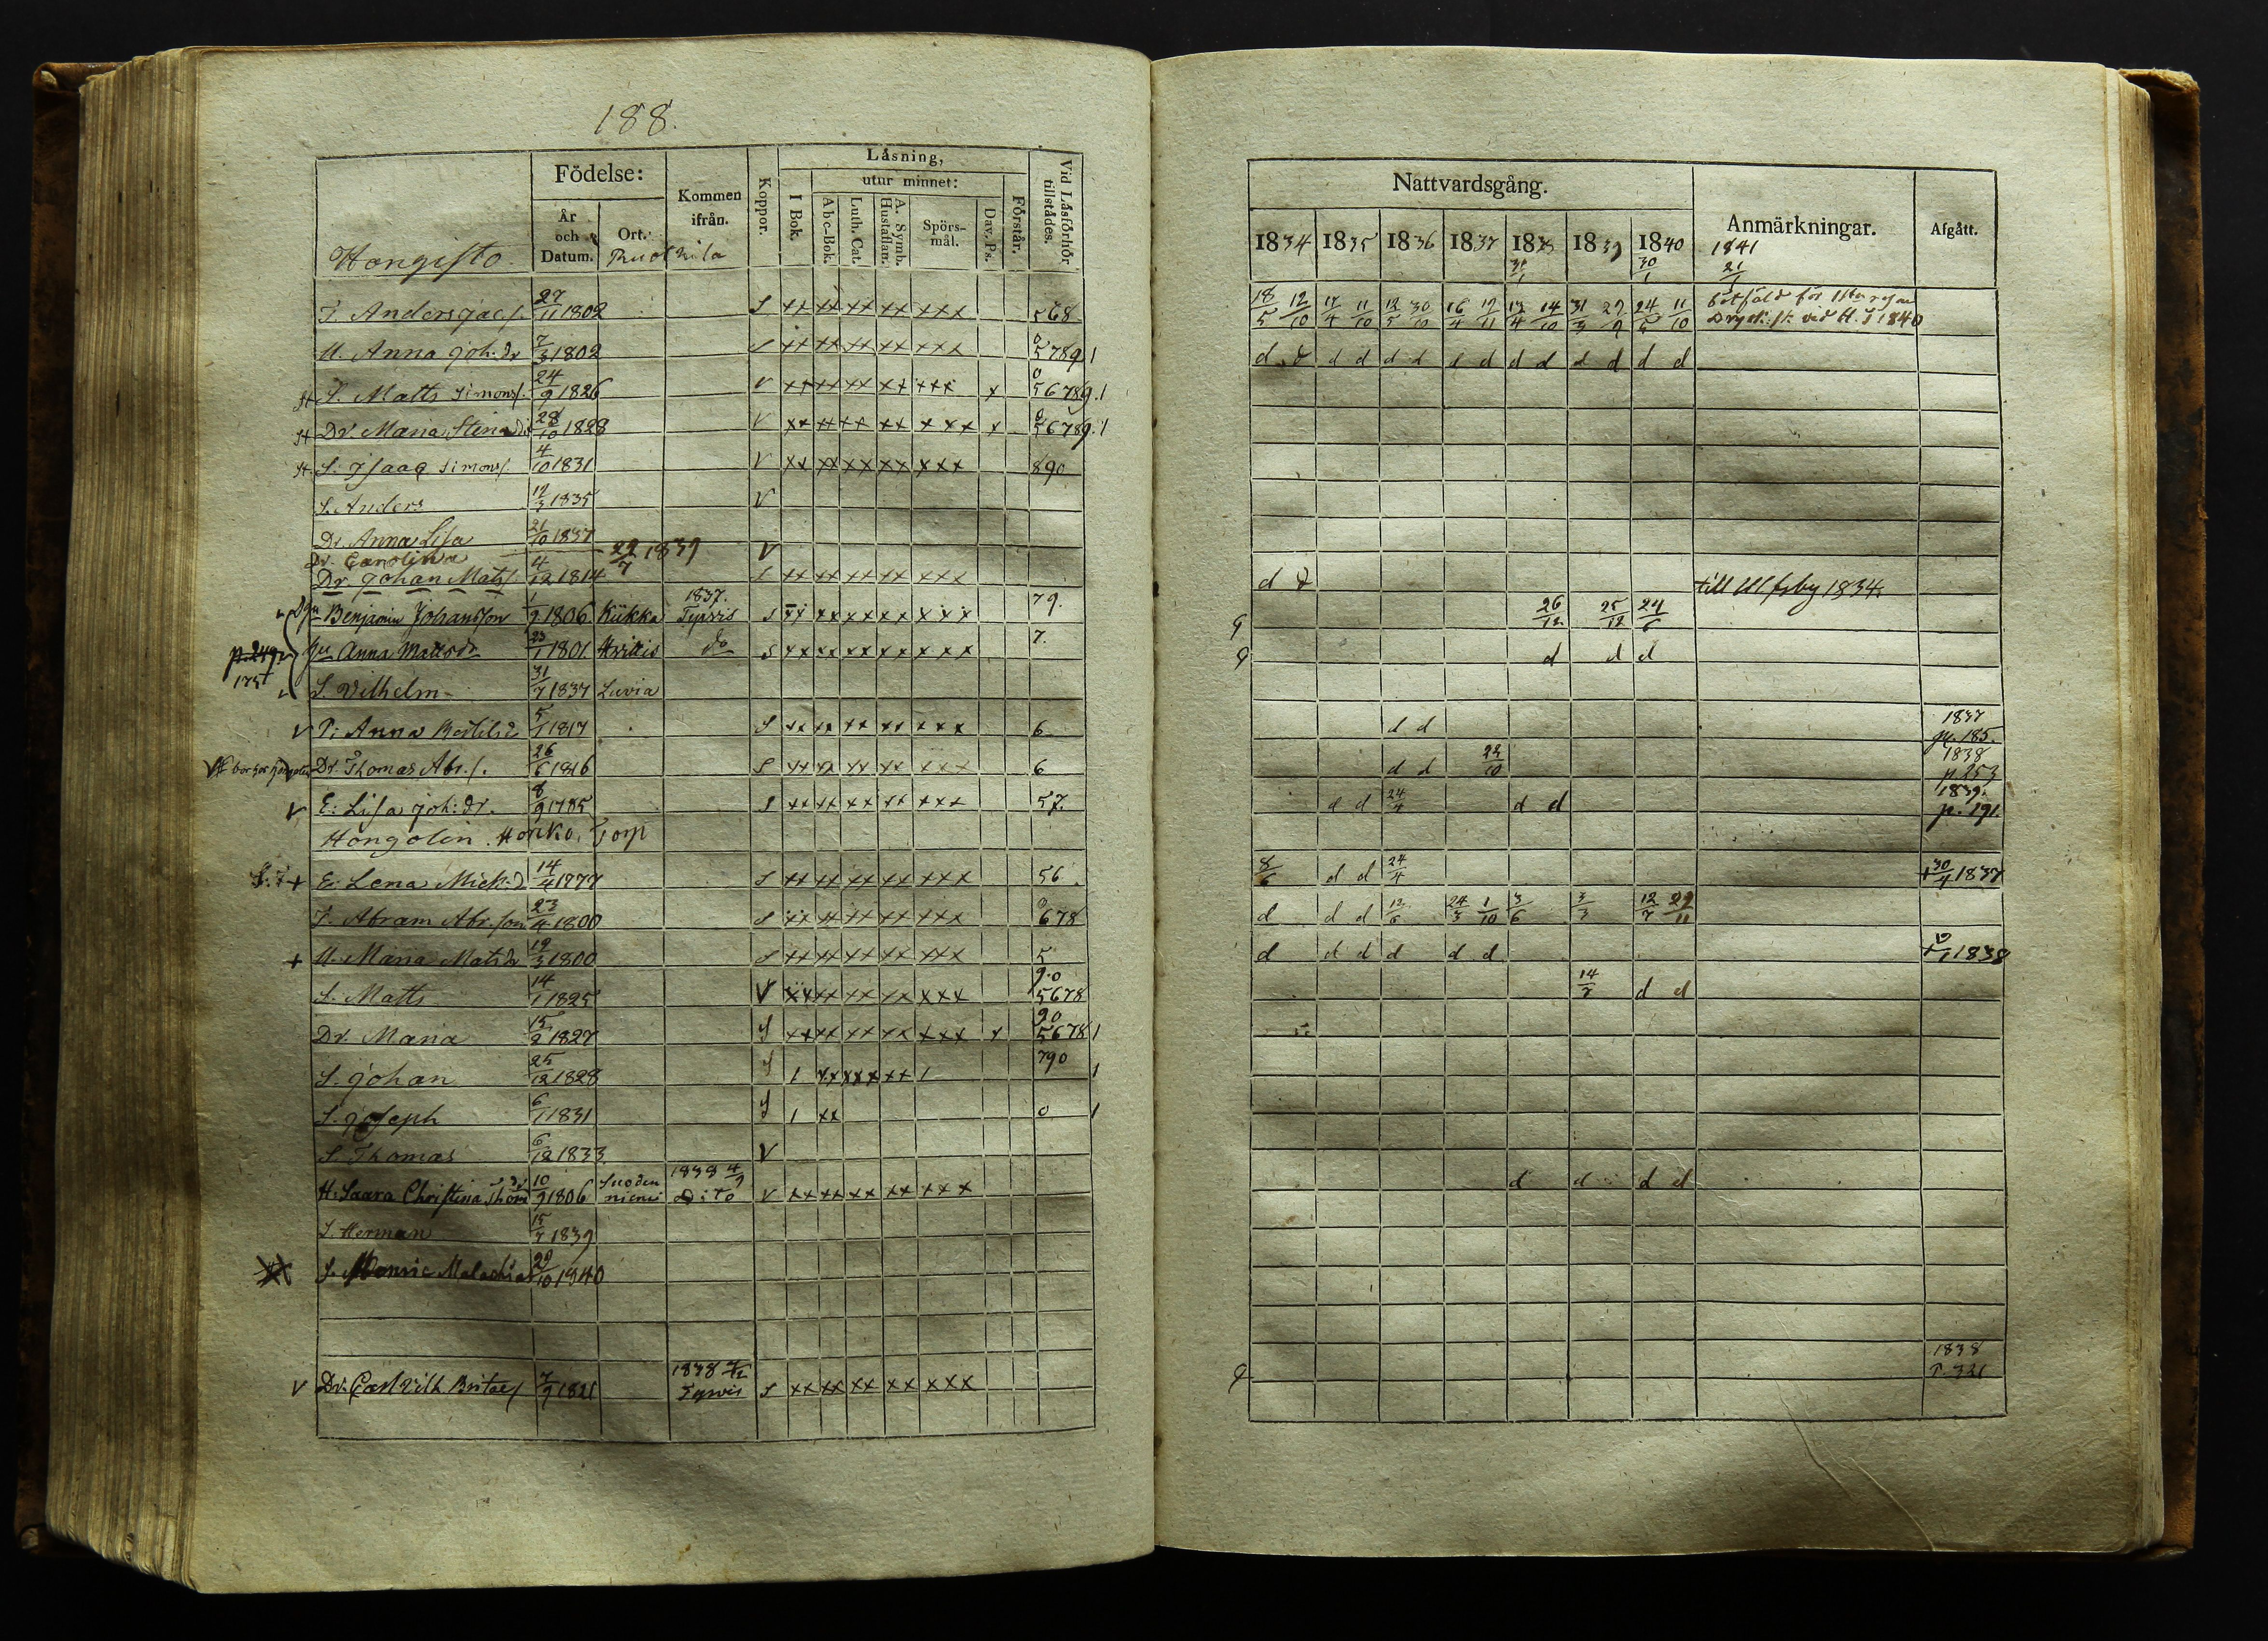 188.
Födelse:
Kommen ifrån.
Koppor.
Läsning,
utur minnet:
I Bok.
Abc-Bok.
Luth. Cat.
A. Symb. Hustaflan.
Spörs-mål.
Dav. Ps.
Förstår.
Vid Läsförhör tillstädes.
År och Datum.
Ort.
Hongisto
T. Anders Jac/. 27/11 1802 S xx xx xx xx xxx 568
U. Anna Joh. dr 7/3 1802 S xx xx xx xx xxx 0 5789 1
st S. Matts Simons/. 24/9 1826 V xx xx xx xx xxx x 0 56789.1
st Dr Maria Stina 28/10 1828 V xx xx xx xx xxx x 56789.1
st. S. Isaaq Simons/. 4/10 1831 V xx xx xx xx xxx 890
S. Anders 12/3 1835 V
Dr. Anna Lisa 21/10 1837
Dr. Carolina 29/7 1839 V
Dr. Johan Mats/. 4/12 1814 S xx xx xx xx xxx
Benjamin Johansson 1/9 1806 Kiikka 1837. Tyrvis S xx xx xx xx xxx 79.
p. 249 Anna Mattsdr 23/1 1801 do S xx xx xx xx xxx 7.
S. Vilhelm 31/7 1837 Luvia
V P: Anna Bertilsd 5/1 1817 S xx xx xx xx xxx 6
Dr. Thomas Abr./. 26/6 1816 S xx xx xx xx xxx 6
V E: Lisa Joh: dr. 8/9 1785 S xx xx xx xx xxx 57.
Hongolin. Honko. Torp
+ E: Lena Mich: d 14/4 1777 S xx xx xx xx xxx 56.
T. Abram Abr.son 23/4 1800 S xx xx xx xx xxx 0 678
+ U. Maria Mats dr 19/3 1800 S xx xx xx xx xxx 5
S. Matts 14/1 1825 V xx xx xx xx xxx 9.0 5678
Dr. Maria 15/2 1827 S xx xx xx xx xxx x 90 5678 1
S. Johan 25/12 1828 S 1 xx xx xx 1 790 1
S. Joseph 6/1 1831 S 1 xx 0 1
S. Thomas 6/12 1833 V
H: Saara Christina Thom dr 10/9 1806 Suoden niemi 1838 4/9 Dito V xx xx xx xx xxx
S. Herman 15/7 1839
S. Henric Malachias 29/10 1840
V Dr. Carl Vilh Britae/ 7/9 1821 1838 Tyrvis S xx xx xx xx xxx
Nattvardsgång.
Anmärkningar.
Afgått.
1834 1835 1836 1837 1838 1839 1840 1841
31/1 30/1 21/1
18/5 12/10 17/4 11/10 12/5 30/10 16/4 12/11 17/4 14/10 31/3 29/9 24/5 11/10 bötfäld för
vid H. T 1840
d d d d d d d d d d d d d d
d d till Ulfsby 1834.
26/12 25/12 24/6
d d d
d d 1837 p. 185.
d d 22/10 1838 p. 253
d d 24/4 d d 1839. p. 191.
8/6 d d 24/4 + 30/4 1837
d d d 12/6 24/3 1/10 3/6 3/3 12/7 29/11
d d d d d d + 1838
14/7 d d
d d d d
1838 P. 321